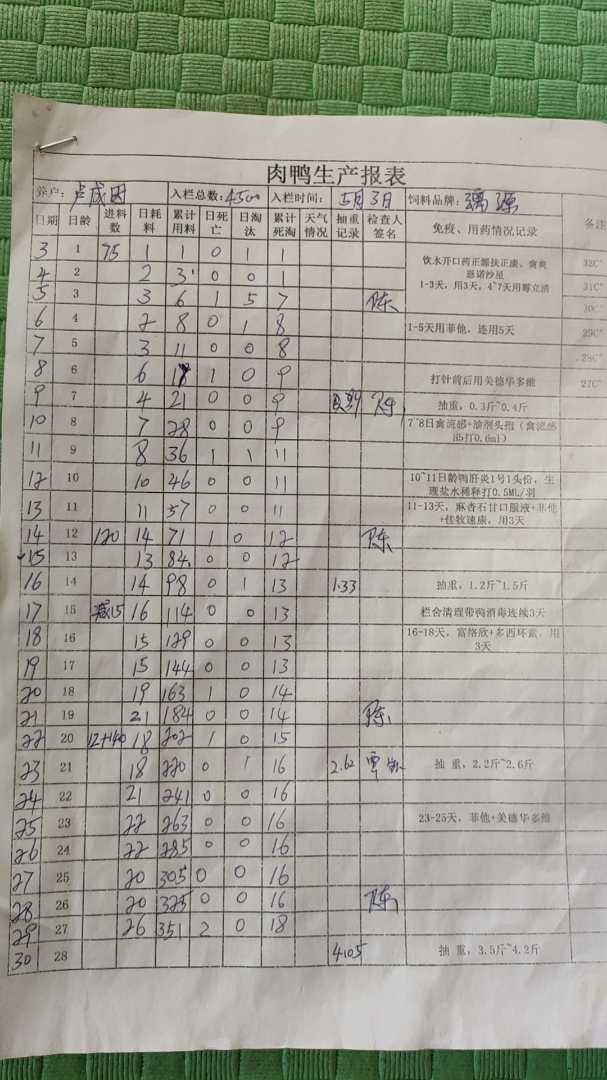 肉鸭生产报表
养户: 卢成因 入栏总数: 4500 入栏时间: 5月3日 饲料品牌: 漓源
日期 日龄 进料数 日耗料 累计用料 日死亡 日淘汰 累计死淘 天气情况 抽重记录 检查人签名 免疫、用药情况记录 备注
3 1 75 1 1 0 1 1 饮水开口药正源扶正康、禽炎恩诺沙星 32C°
4 2 2 3 0 0 1 1-3天，用3天，4~7天用霉立消 31C°
5 3 3 6 1 5 7 陈 30C°
6 4 2 8 0 1 8 1-5天用菲他，连用5天 29C°
7 5 3 11 0 0 8 28C°
8 6 6 17 1 0 9 打针前后用美德华多维 27C°
9 7 4 21 0 0 9 抽重，0.3斤~0.4斤
10 8 7 28 0 0 9 7~8日禽流感+油剂头孢（禽流感H5打0.6ml）
11 9 8 36 1 1 11
12 10 10 46 0 0 11 10~11日龄鸭肝炎1号1头份，生理盐水稀释打0.5ML/羽
13 11 11 57 0 0 11 11-13天，麻杏石甘口服液+菲他+佳牧速康，用3天
14 12 120 14 71 1 0 12 陈
15 13 13 84 0 0 12
16 14 14 98 0 1 13 1.33 抽重，1.2斤~1.5斤
17 15 减15 16 114 0 0 13 栏舍清理带鸭消毒连续3天
18 16 15 129 0 0 13 16-18天，富络欣+多西环素，用3天
19 17 15 144 0 0 13
20 18 19 163 1 0 14
21 19 21 184 0 0 14 陈
22 20 12+140 18 202 1 0 15
23 21 18 220 0 1 16 2.62 抽 重，2.2斤~2.6斤
24 22 21 241 0 0 16
25 23 22 263 0 0 16 23-25天，菲他+美德华多维
26 24 22 285 0 0 16
27 25 20 305 0 0 16
28 26 20 325 0 0 16 陈
29 27 26 351 2 0 18
30 28 4.05 抽 重，3.5斤~4.2斤